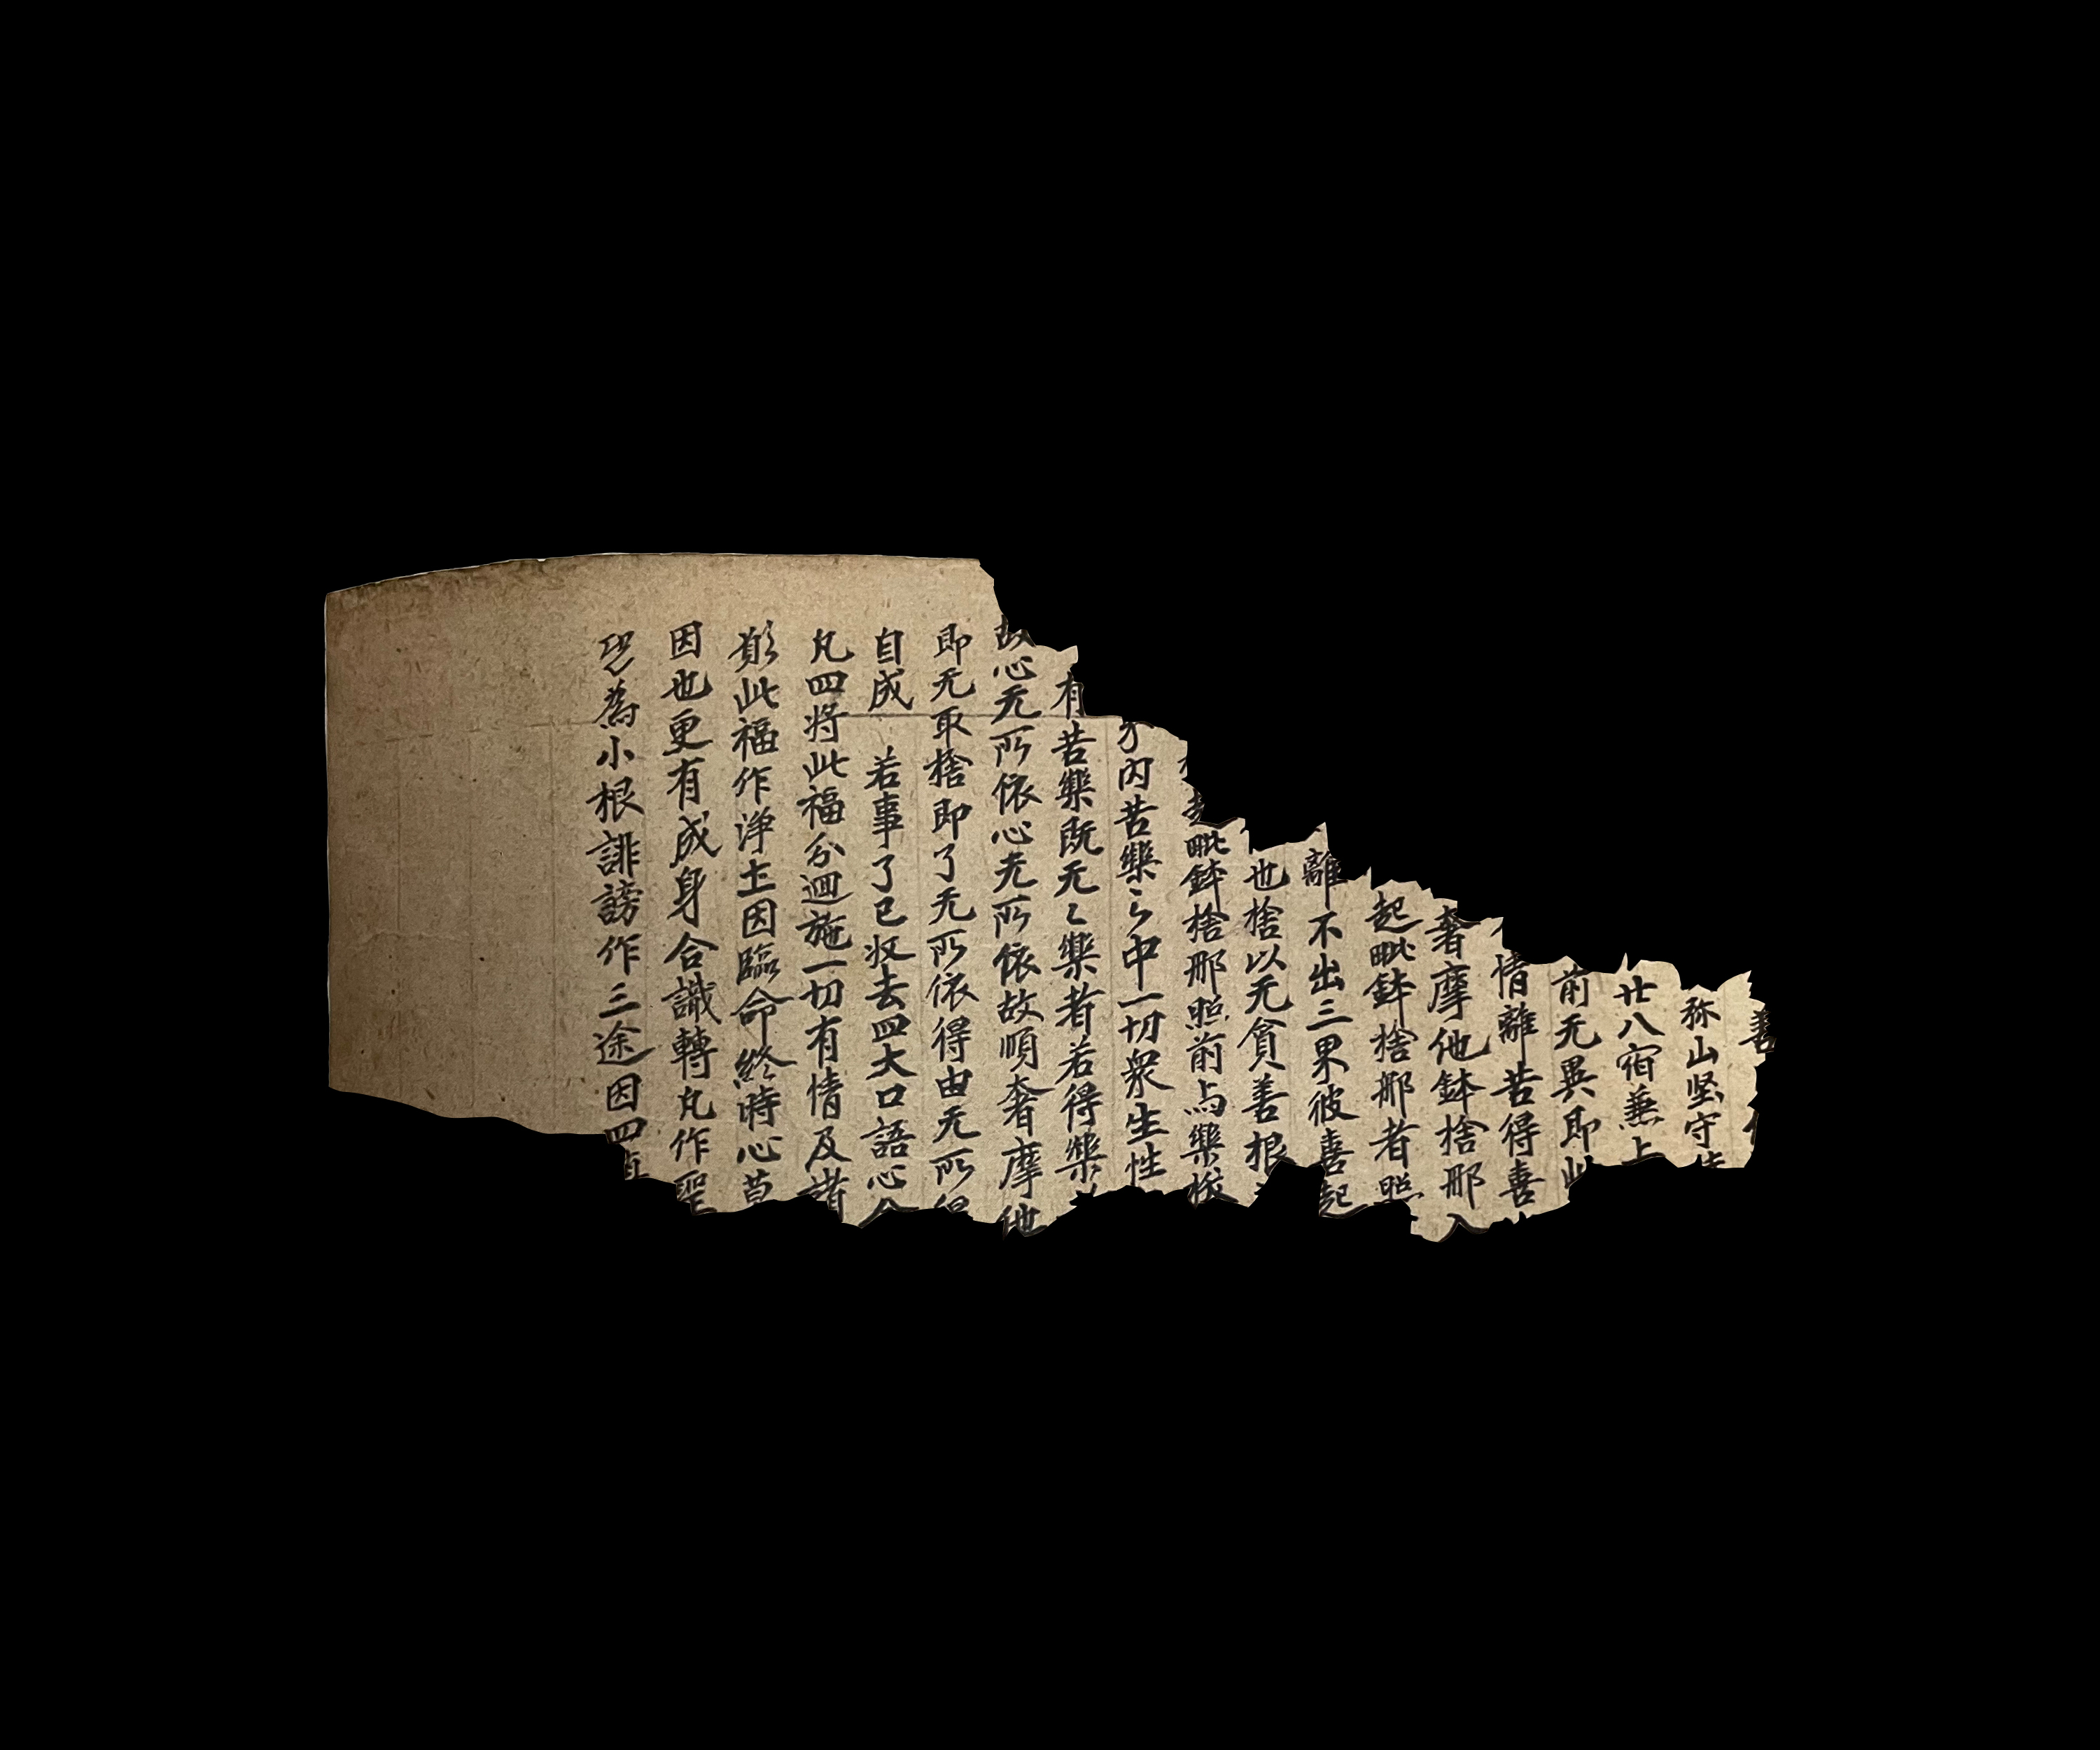 善
弥山坚守
廿八宿兼上
前无異即此
情離苦得喜
奢摩他鉢捨那
起毗鉢捨那者照
離不出三界彼善起
也捨以无貪善根
毗鉢捨那照前与樂捨
内苦樂〻中一切衆生性
有苦樂既无〻樂者若得樂
故心无所依心无所依故順奢摩他
即无取捨即了无所依得由无所得
自成 若事了已收去四大口語心
凡四将此福分迴施一切有情及諸
願此福作浄土因臨命終時心
因也更有成身合識轉凡作聖
恐為小根誹謗作三途因四